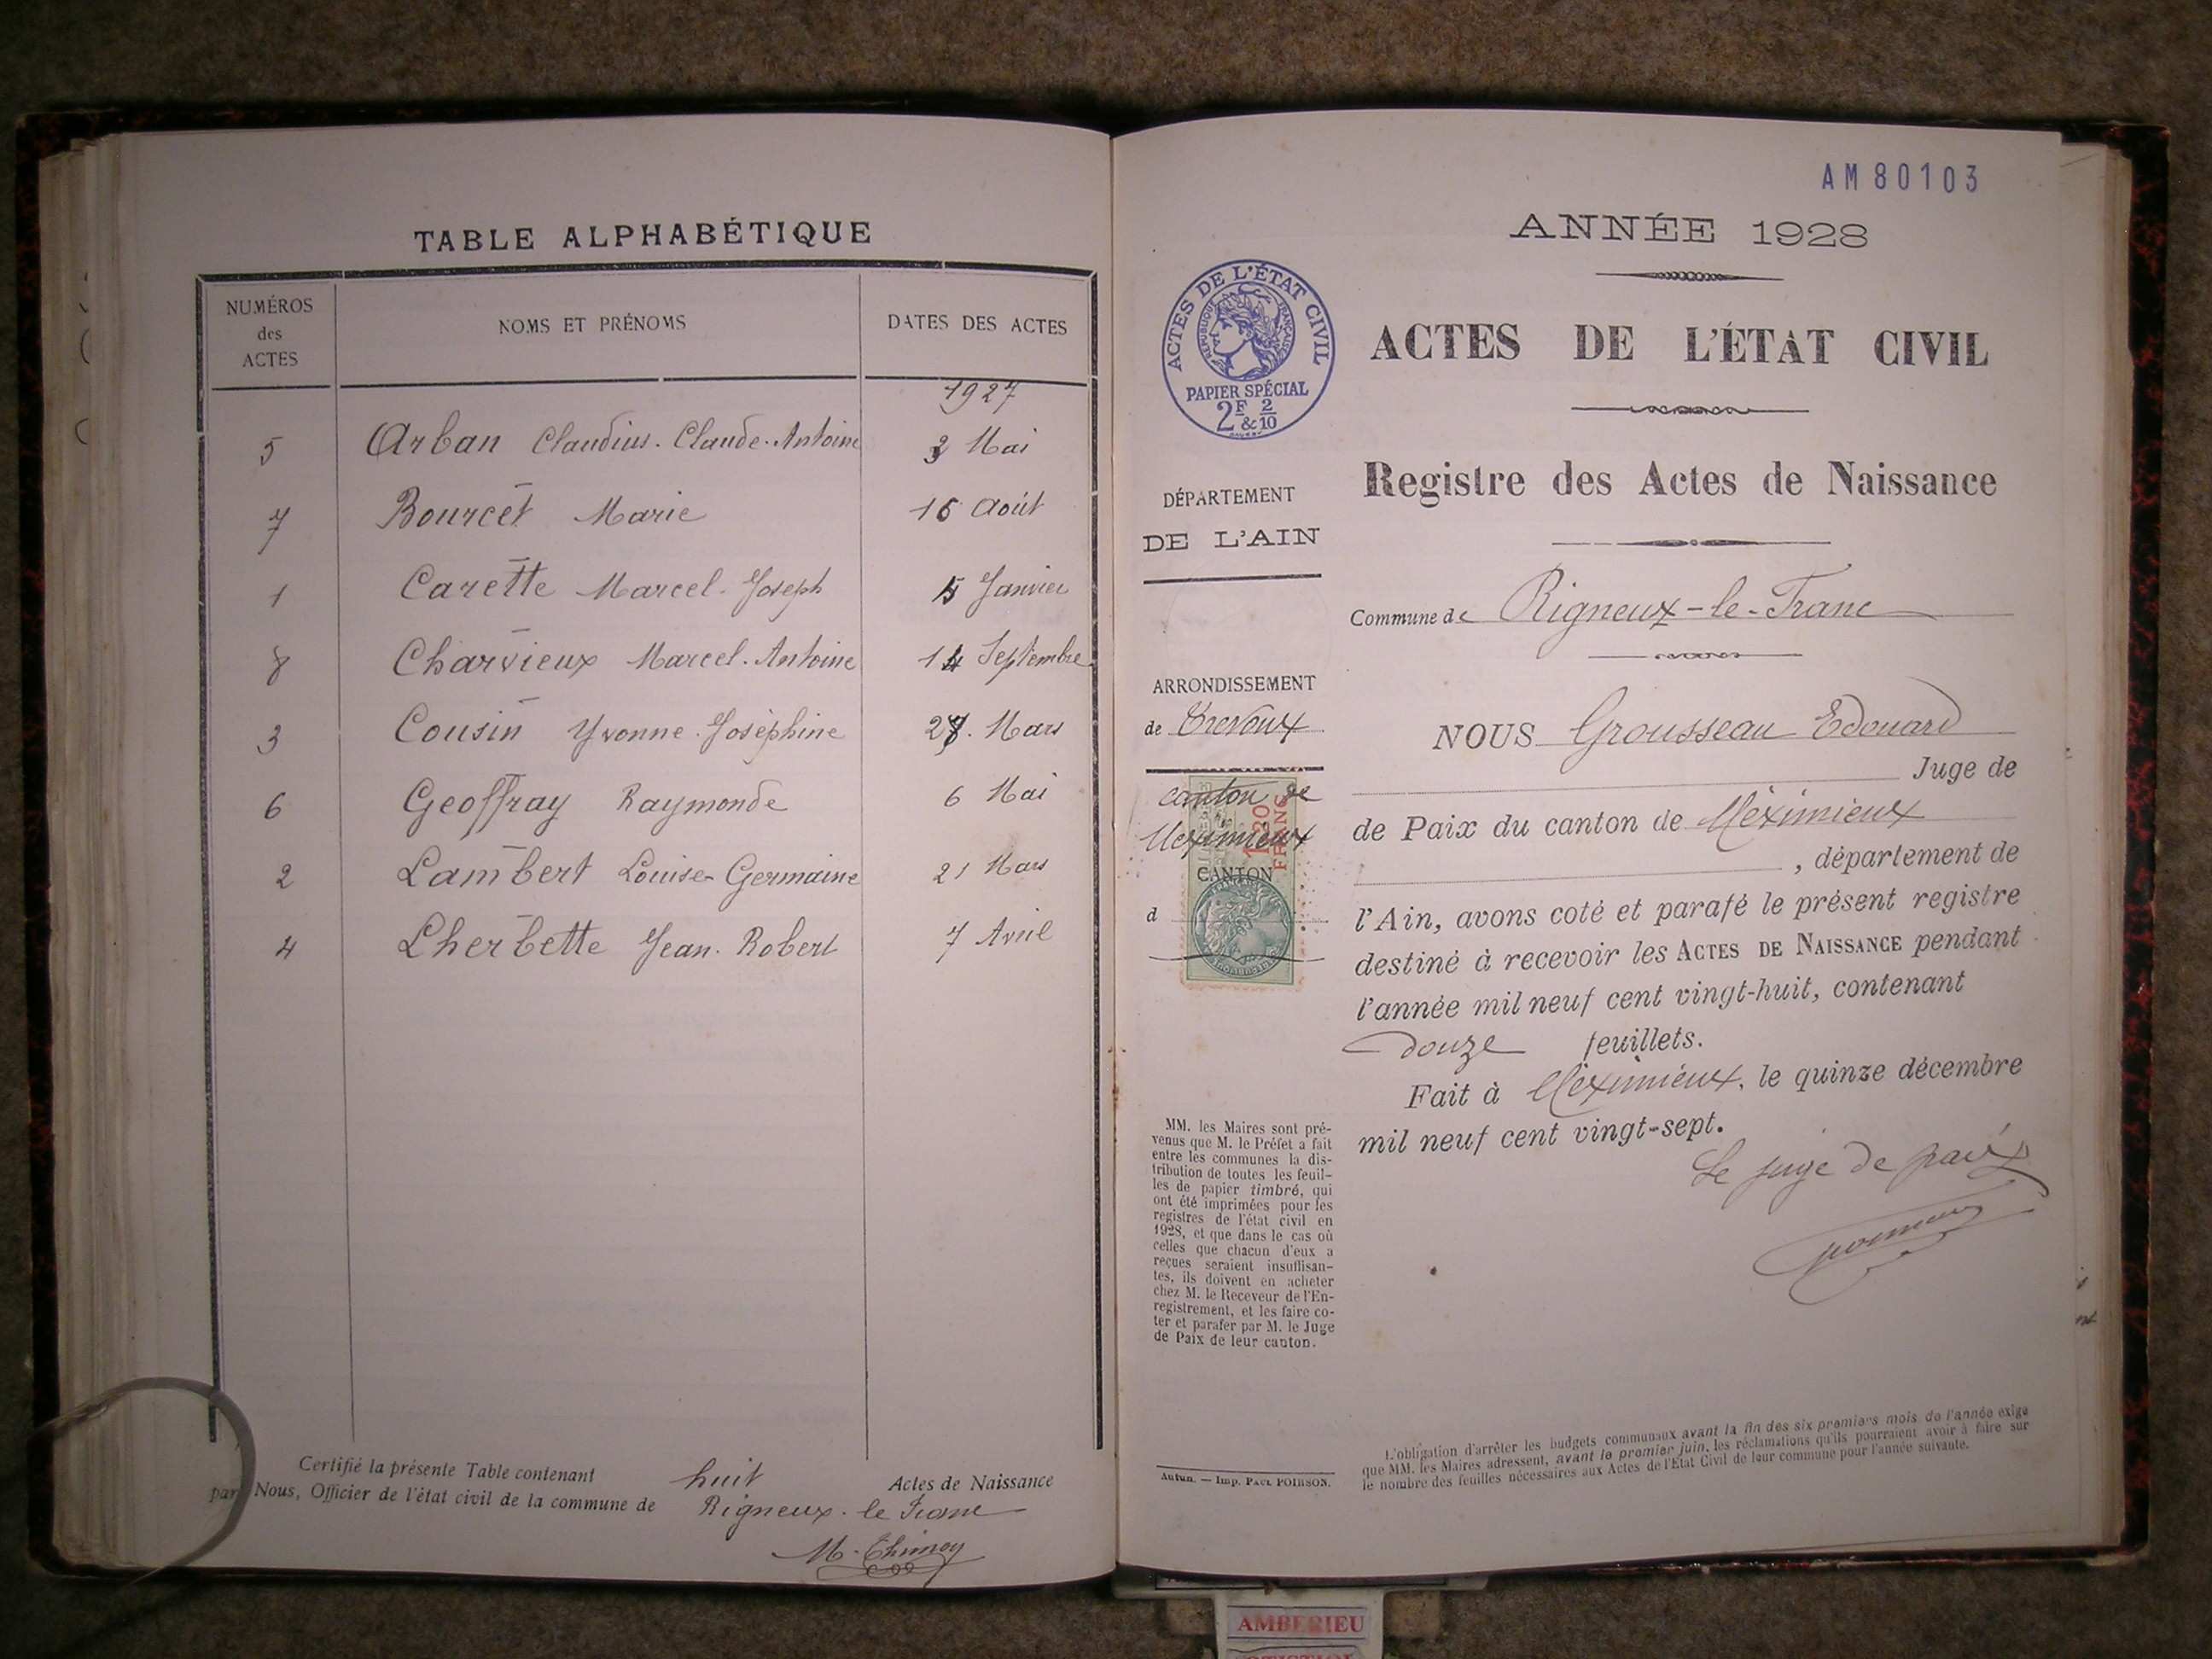 TABLE ALPHABÉTIQUE
NUMÉROS des ACTES
NOMS ET PRÉNOMS
DATES DES ACTES
1927
5 Arban Claudius. Claude. Antoine 3 Mai
7 Bourcet Marie 16 Août
1 Carette Marcel. Joseph 5 Janvier
8 Charvieux Marcel. Antoine 14 Septembre
3 Cousin Yvonne. Joséphine 28. Mars
6 Geoffray Raymonde 6 Mai
2 Lambert Louise-Germaine 21 Mars
4 Lherbette Jean. Robert 7 Avril
Certifié la présente Table contenant huit Actes de Naissance
par Nous, Officier de l'état civil de la commune de Rigneux. le Franc
M. Thimoy
AM80103
ANNÉE 1928
ACTES DE L'ÉTAT CIVIL
RÉPUBLIQUE FRANÇAISE
PAPIER SPÉCIAL
2F & 2/10
ACTES DE L'ÉTAT CIVIL
Registre des Actes de Naissance
DÉPARTEMENT
DE L'AIN
Commune de Rigneux-le-Franc
ARRONDISSEMENT
de Trévoux
canton de
Meximieux
1.20
FRANC
CANTON
d
NOUS Grousseau Edouard
Juge de
de Paix du canton de Méximieux
, département de
l'Ain, avons coté et parafé le présent registre
destiné à recevoir les ACTES DE NAISSANCE pendant
l'année mil neuf cent vingt-huit, contenant
douze feuillets.
Fait à Méximieux, le quinze décembre
mil neuf cent vingt-sept.
Le juge de paix
MM. les Maires sont pré-
venus que M. le Préfet a fait
entre les communes la dis-
tribution de toutes les feuil-
les de papier timbré, qui
ont été imprimées pour les
registres de l'état civil en
1928, et que dans le cas où
celles que chacun d'eux a
reçues seraient insuffisan-
tes, ils doivent en acheter
chez M. le Receveur de l'En-
registrement, et les faire co-
ter et parafer par M. le Juge
de Paix de leur canton.
Autun. — Imp. PAUL POIRSON.
L'obligation d'arrêter les budgets communaux avant la fin des six premiers mois de l'année exige
que MM. les Maires adressent, avant le premier juin, les réclamations qu'ils pourraient avoir à faire sur
le nombre des feuilles nécessaires aux Actes de l'État Civil de leur commune pour l'année suivante.
AMBERIEU